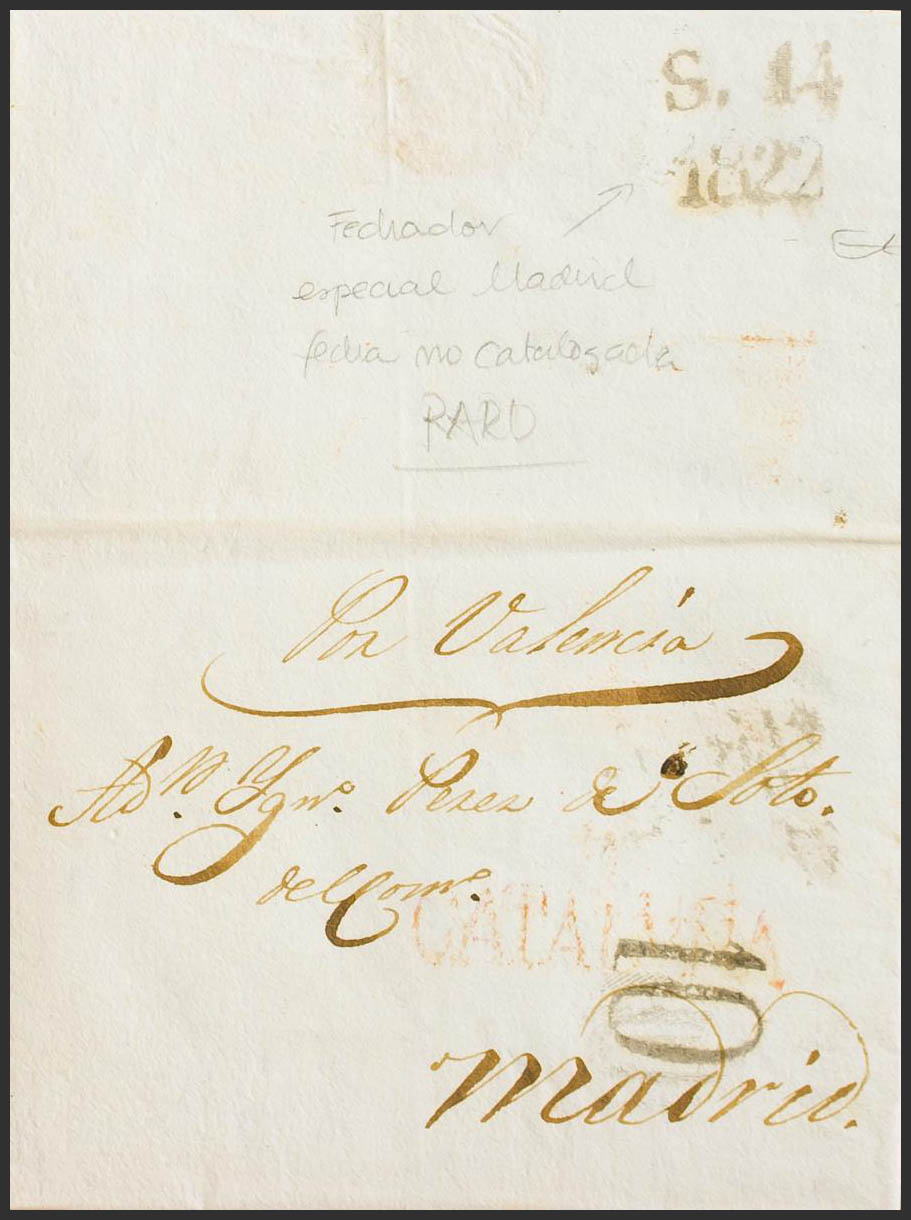 S. 14
1822
Fechador
especial Madrid
fecha no catalogada
RARO
Por Valencia
A Dn. Ygno. Perez de Soto.
del Como.
CATALUÑA
10
Madrid.